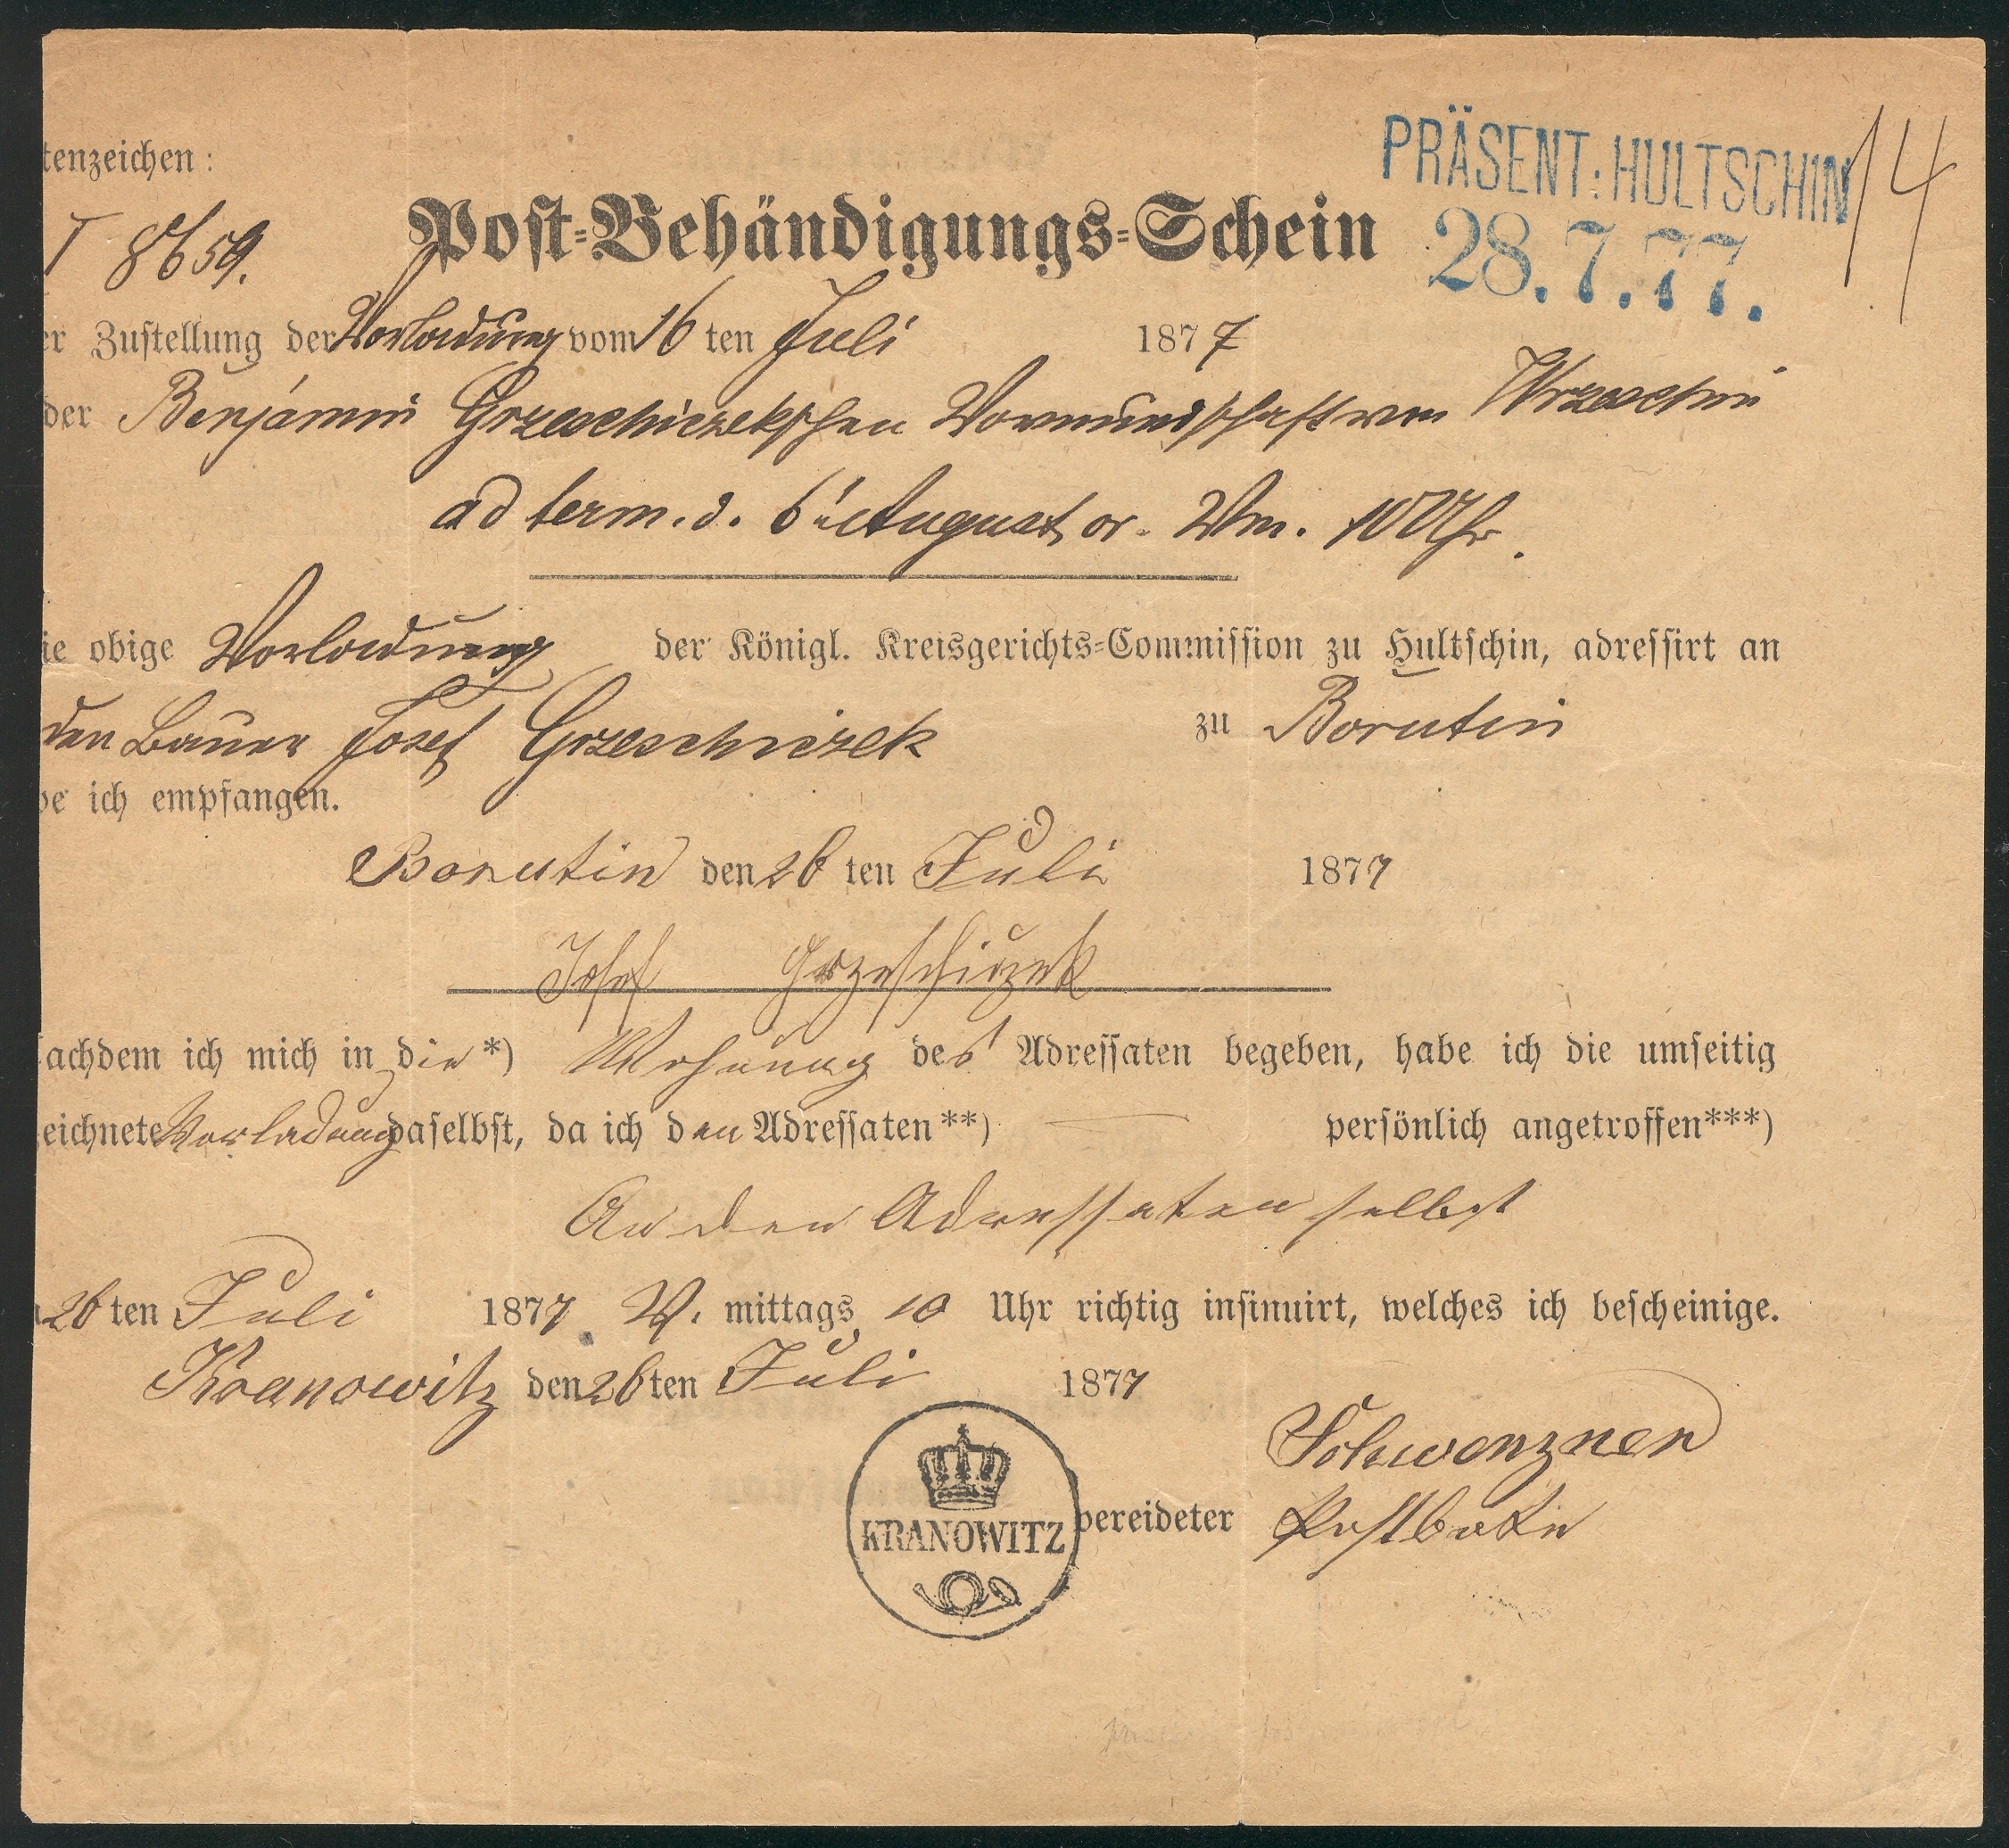 tenzeichen:
PRÄSENT: HULTSCHIN
14
T 8659.
Post-Behändigungs-Schein
28.7.77.
er Zustellung der Vorladung vom 16 ten Juli 1877
der Benjamin Grzeschiczekschen Vormundschaft von Wrzeschin
ad term. d. 6t August cr. Vm. 10 Uhr.
ie obige Vorladung der Königl. Kreisgerichts-Commission zu Hultschin, adressirt an
den Bauer Josef Grzeschiczek zu Borutin
be ich empfangen.
Borutin den 26 ten Juli 1877
Josef Grzeschiczek
achdem ich mich in die *) Wohnung des Adressaten begeben, habe ich die umseitig
eichnete Vorladung daselbst, da ich den Adressaten **) — persönlich angetroffen ***)
An den Adressaten selbst
26 ten Juli 1877 V. mittags 10 Uhr richtig insinuirt, welches ich bescheinige.
Kranowitz den 26 ten Juli 1877
Schwenzner
KRANOWITZ
bereideter Postbote